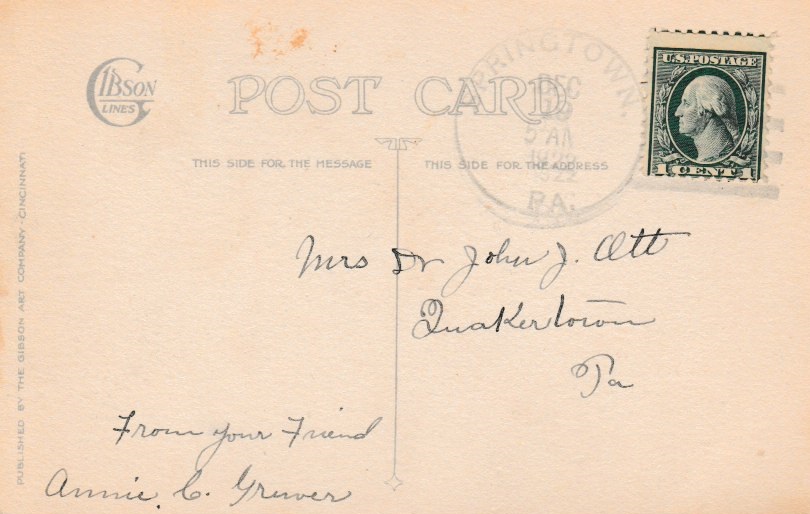 GIBSON
LINES
POST CARD
THIS SIDE FOR THE MESSAGE
THIS SIDE FOR THE ADDRESS
PRINGTOWN.
DEC
5 AM
1922
PA.
U.S. POSTAGE
1 CENT 1
Mrs Dr John J. Ott
Quakertown
Pa
From your Friend
Annie. C. Grewer
PUBLISHED BY THE GIBSON ART COMPANY - CINCINNATI